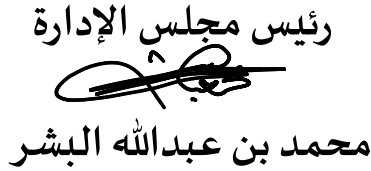 رئيس مجلس الإدارة
محمد بن عبدالله البشر